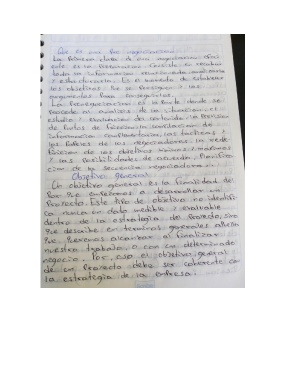 Que es una Pre negociacion
La Primera clave de una negociacion efici
ente es la Preparacion Consiste en recabar
toda la informacion necesaria analizarla
y estructurarla. Es el momento de establecer
los objetivos que se Persiguen y los
argumentos Para conseguirlos.
La Prenegociacion es la Parte donde se
Procede en analisis de la situacion, el
estudio y evaluacion del contenido la Prevision
de Puntos de friccion la recopilacion de
informacion complementaria, las tacticas y
los Perfiles de los negociadores, la
de los objetivos minimos y maximos
y las Posibilidades de acuerdo. Planifica
cion de la secuencia negociadora.
Objetivo general
Un objetivo general es la finalidad del
Por que empezamos a desarrollar un
Proyecto. Este tipo de objetivo no identifi
ca nunca un dato medible y evaluable
dentro de la estrategia del Proyecto, sino
que describe en terminos generales
que queremos alcanzar al finalizar
nuestro trabajo o con un determinado
negocio. Por eso el objetivo general
de un Proyecto debe ser coherente con
la estrategia de la empresa.